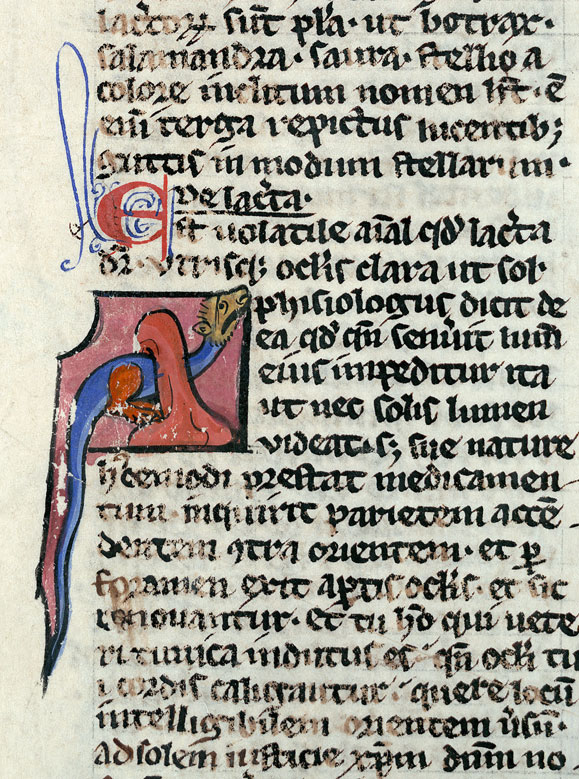 lac̄toꝝ sūt pl̄a · ut botrax ·
salamandra · saura · stellio a
colore inclitum nomen hſt · ē
enī terga repictus lucentib;
guttis in modum stellar · un ·
De lac̄ta ·
Est uolatile aīal qd̄ lac̄ta
dr̄ · utrisq; oclis clara ut sol ·
phisiologus dicit de
ea qd̄ qn̄ senuit lum̄
eius impeditur ita
ut nec solis lumen
uideat · s; sue nature
hcemodi prestat medicamen
tum · inquirit parietem attē
dentem ꝯtra orientem · et p̄
foramen exit aptis oclis · et sic
renouantur · et tu hō qui uete
ri tunica indutus es · qn̄ ocl̄i tu
i cordis caligantur · quere locū
intelligibilem orientem uersū ·
ad solem iusticie xp̄m dn̄m no